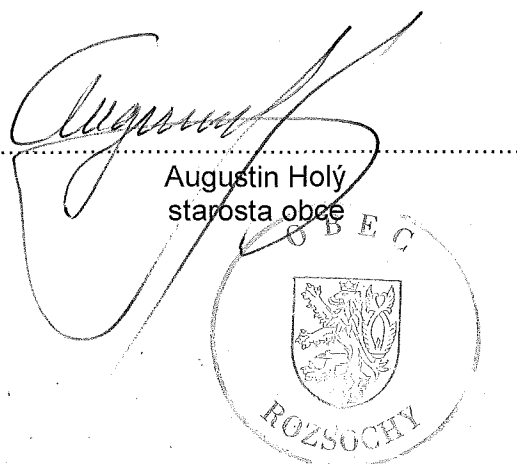 Augustin Holý
starosta obce
OBEC
ROZSOCHY